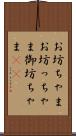 お坊ちゃま
お坊っちゃ
ま御坊ちゃ
ま